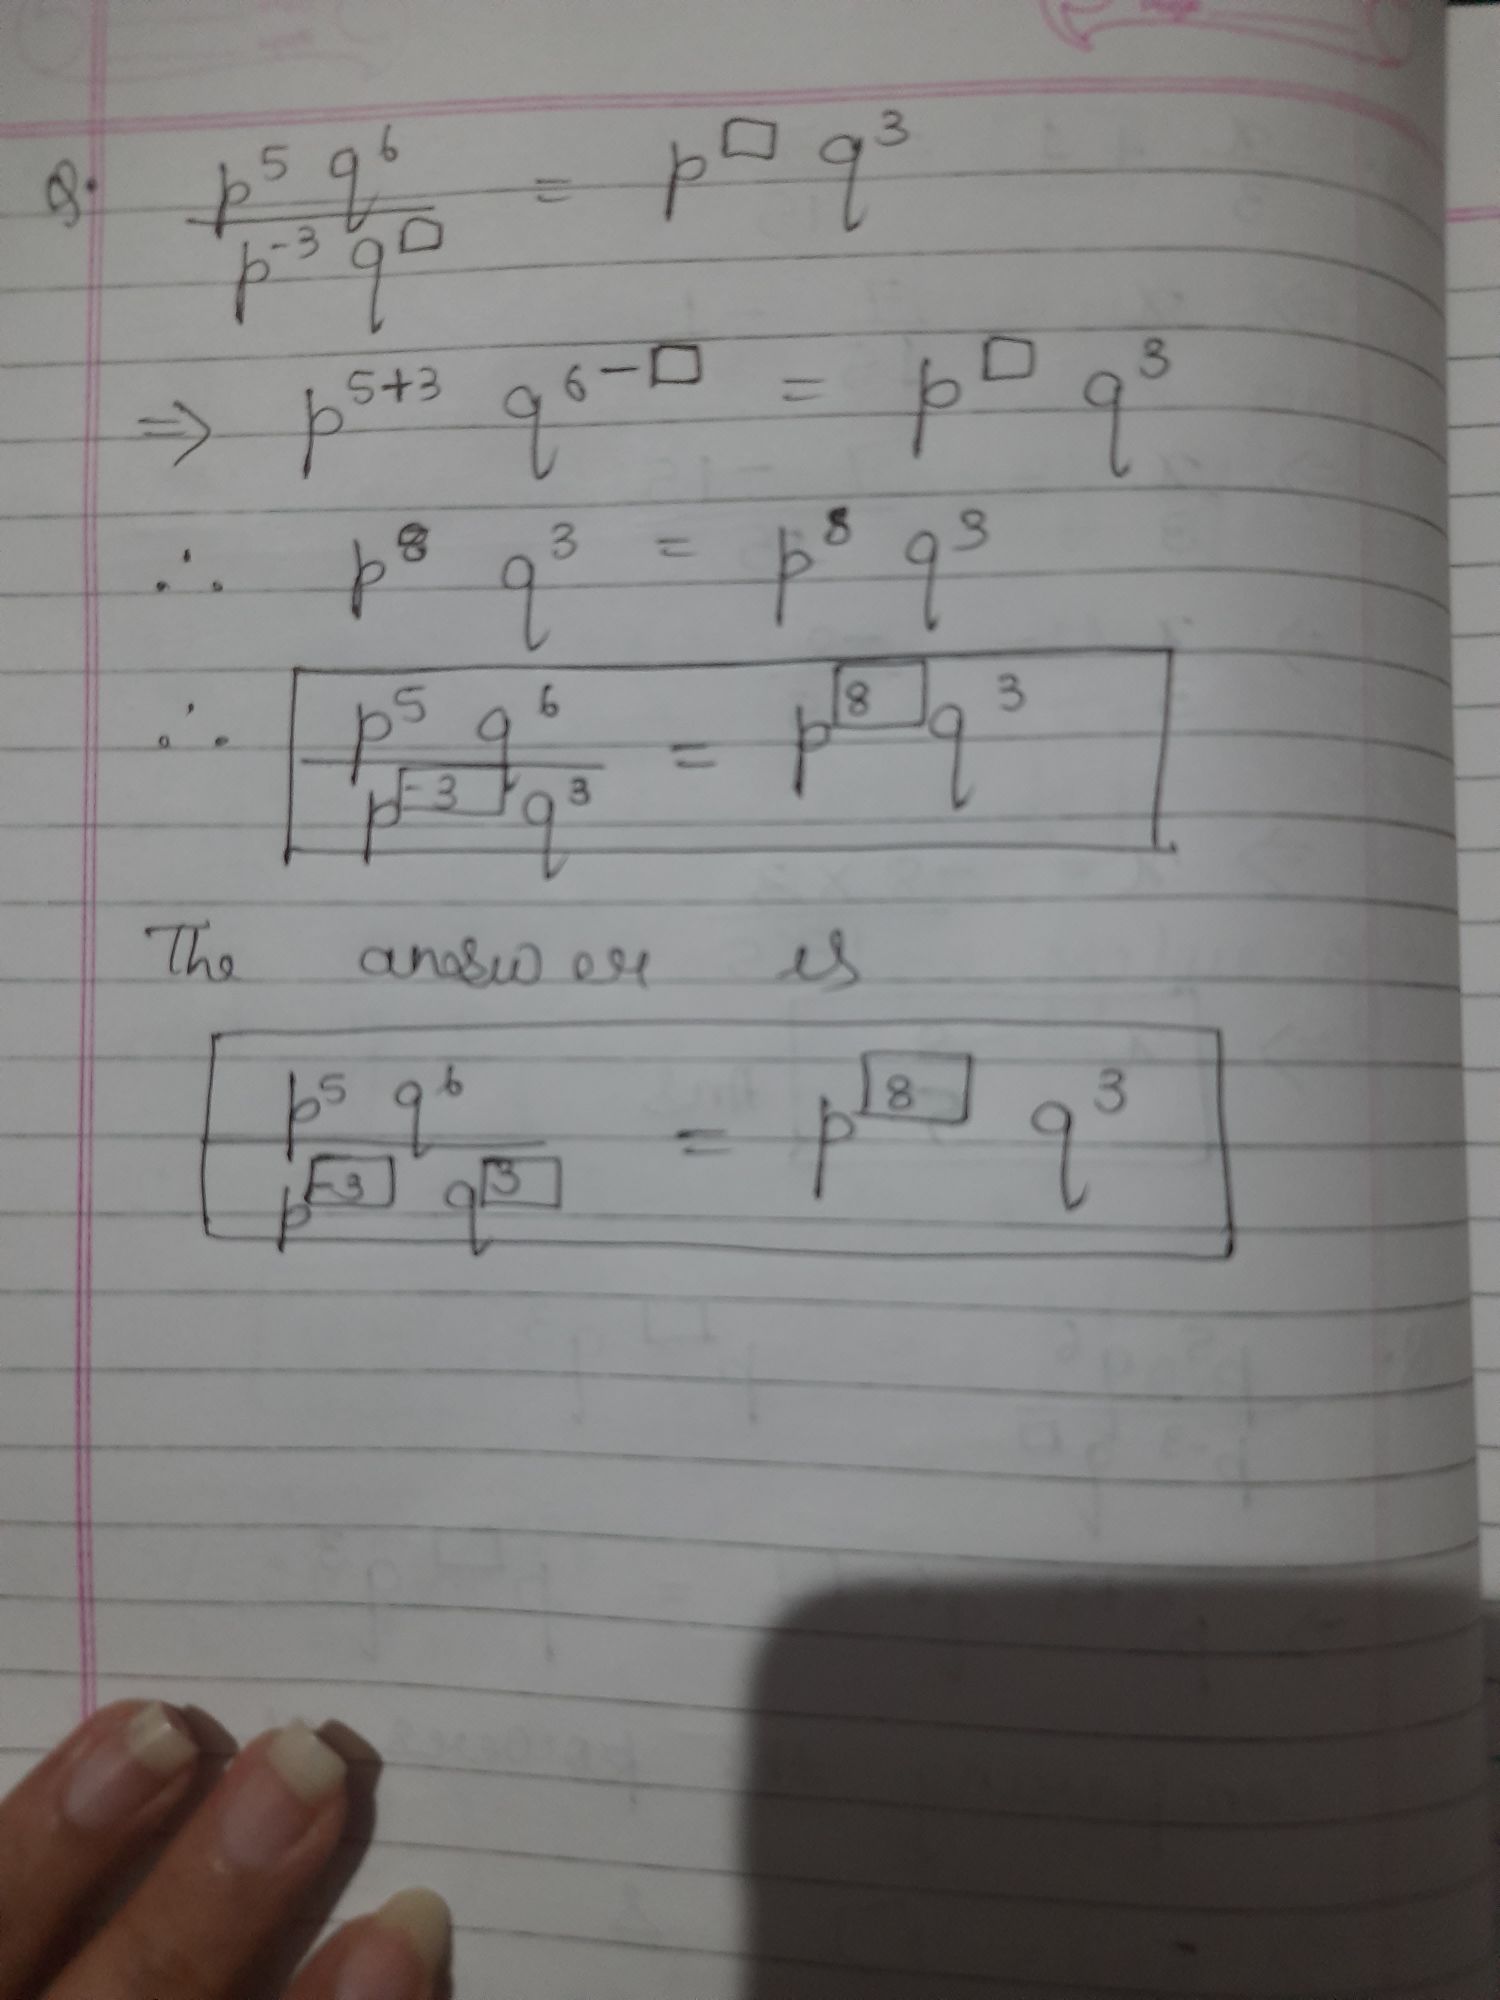 Q. p⁵ q⁶ / p⁻³ q^□ = p^□ q³
⇒ p⁵⁺³ q^(6-□) = p^□ q³
∴ p⁸ q³ = p⁸ q³
∴ p⁵ q⁶ / p^[-3] q³ = p^[8] q³
The answer is
p⁵ q⁶ / p^[-3] q^[3] = p^[8] q³